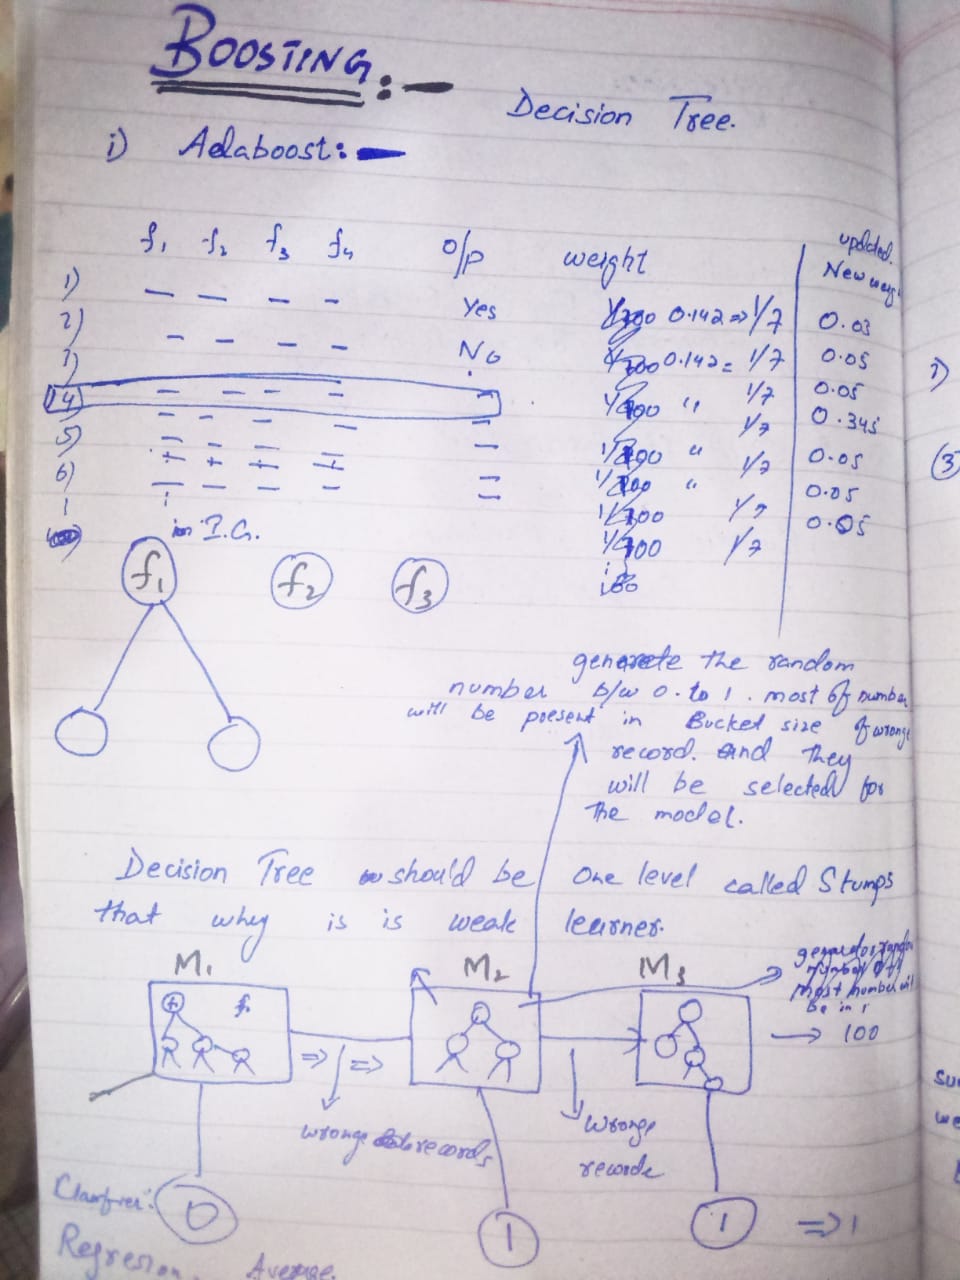 BOOSTING :-
Decision Tree.
i) Adaboost :-
f1 f2 f3 f4 O/P weight updated.
New weig
1) Yes 1/100 0.142 => 1/7 0.03
2) No 1/100 0.142 = 1/7 0.05
1) 1/100 " 1/7 0.05
4) 1/7 0.345
5) 1/100 " 1/7 0.05
6) 1/100 " 0.05
1/100 1/7 0.05
1/100 1/7
I.G.
f1 f2 f3
generate the random
number b/w 0. to 1. most of number
will be present in Bucket size of wrong
record. and they
will be selected for
the model.
Decision Tree should be one level called Stumps
that why is is weak learner.
M1 M2 M3
most number will
be in 1
f1
=> => -> 100
wronge records
wronge
records
Classifier: 0 1 1 => 1
Regression. Average.
1)
(3)
su
we